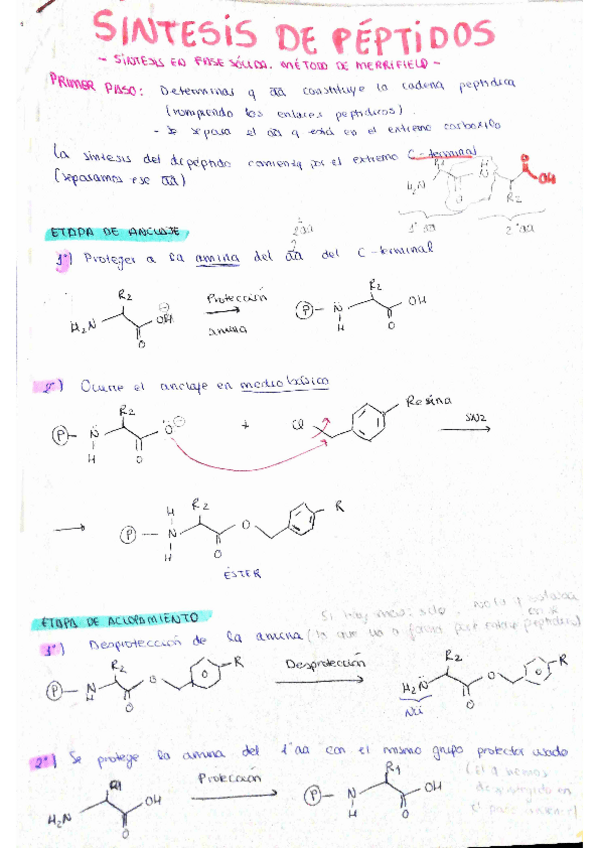 SINTESIS DE PÉPTIDOS
- SÍNTESIS EN FASE SÓLIDA. MÉTODO DE MERRIFIELD -
PRIMER PASO: Determinar q aa constituye la cadena peptídica
(rompiendo los enlaces peptídicos).
- Se separa el aa q está en el extremo carboxilo
La síntesis del dipéptido comienza por el extremo C-terminal
(separamos ese aa)
R1 H N OH
H2N O R2
1º aa 2º aa
ETAPA DE ANCLAJE
2 aa
1º) Proteger a la amina del aa del C-terminal
R2 Protección R2
H2N O amina P N H OH O
2º) Ocurre el anclaje en medio básico
P N H R2 O O + Cl Resina SN2
P N H H R2 O O R
ÉSTER
ETAPA DE ACLOPAMIENTO
Si hay
1º) Desprotección de la amina (la que va a formar enlace peptídico)
P NH R2 O O R Desprotección H2N R2 O O R
Nü
2º) Se protege la amina del 1º aa con el mismo grupo protector usado
H2N R1 OH O Protección P N H R1 OH O
(El q hemos
desprotegido en
el paso anterior)